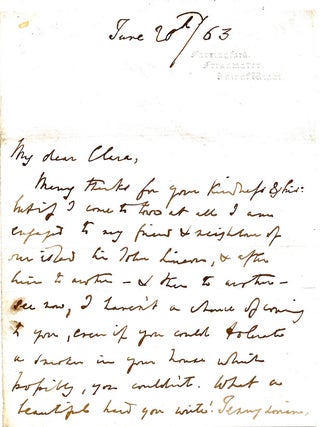 June 20th/63
Farringford,
Freshwater,
Isle of Wight.
My dear Clara,
Many thanks for your kindness & his:
but if I come to town at all I am
engaged to my friend & neighbour of
our island Sir John Simeon, & after
him to another – & then to another –
see now, I haven't a chance of coming
to you, even if you could tolerate
a smoker in your house which
possibly, you couldn't. What a
beautiful hand you write! Tennysonian,